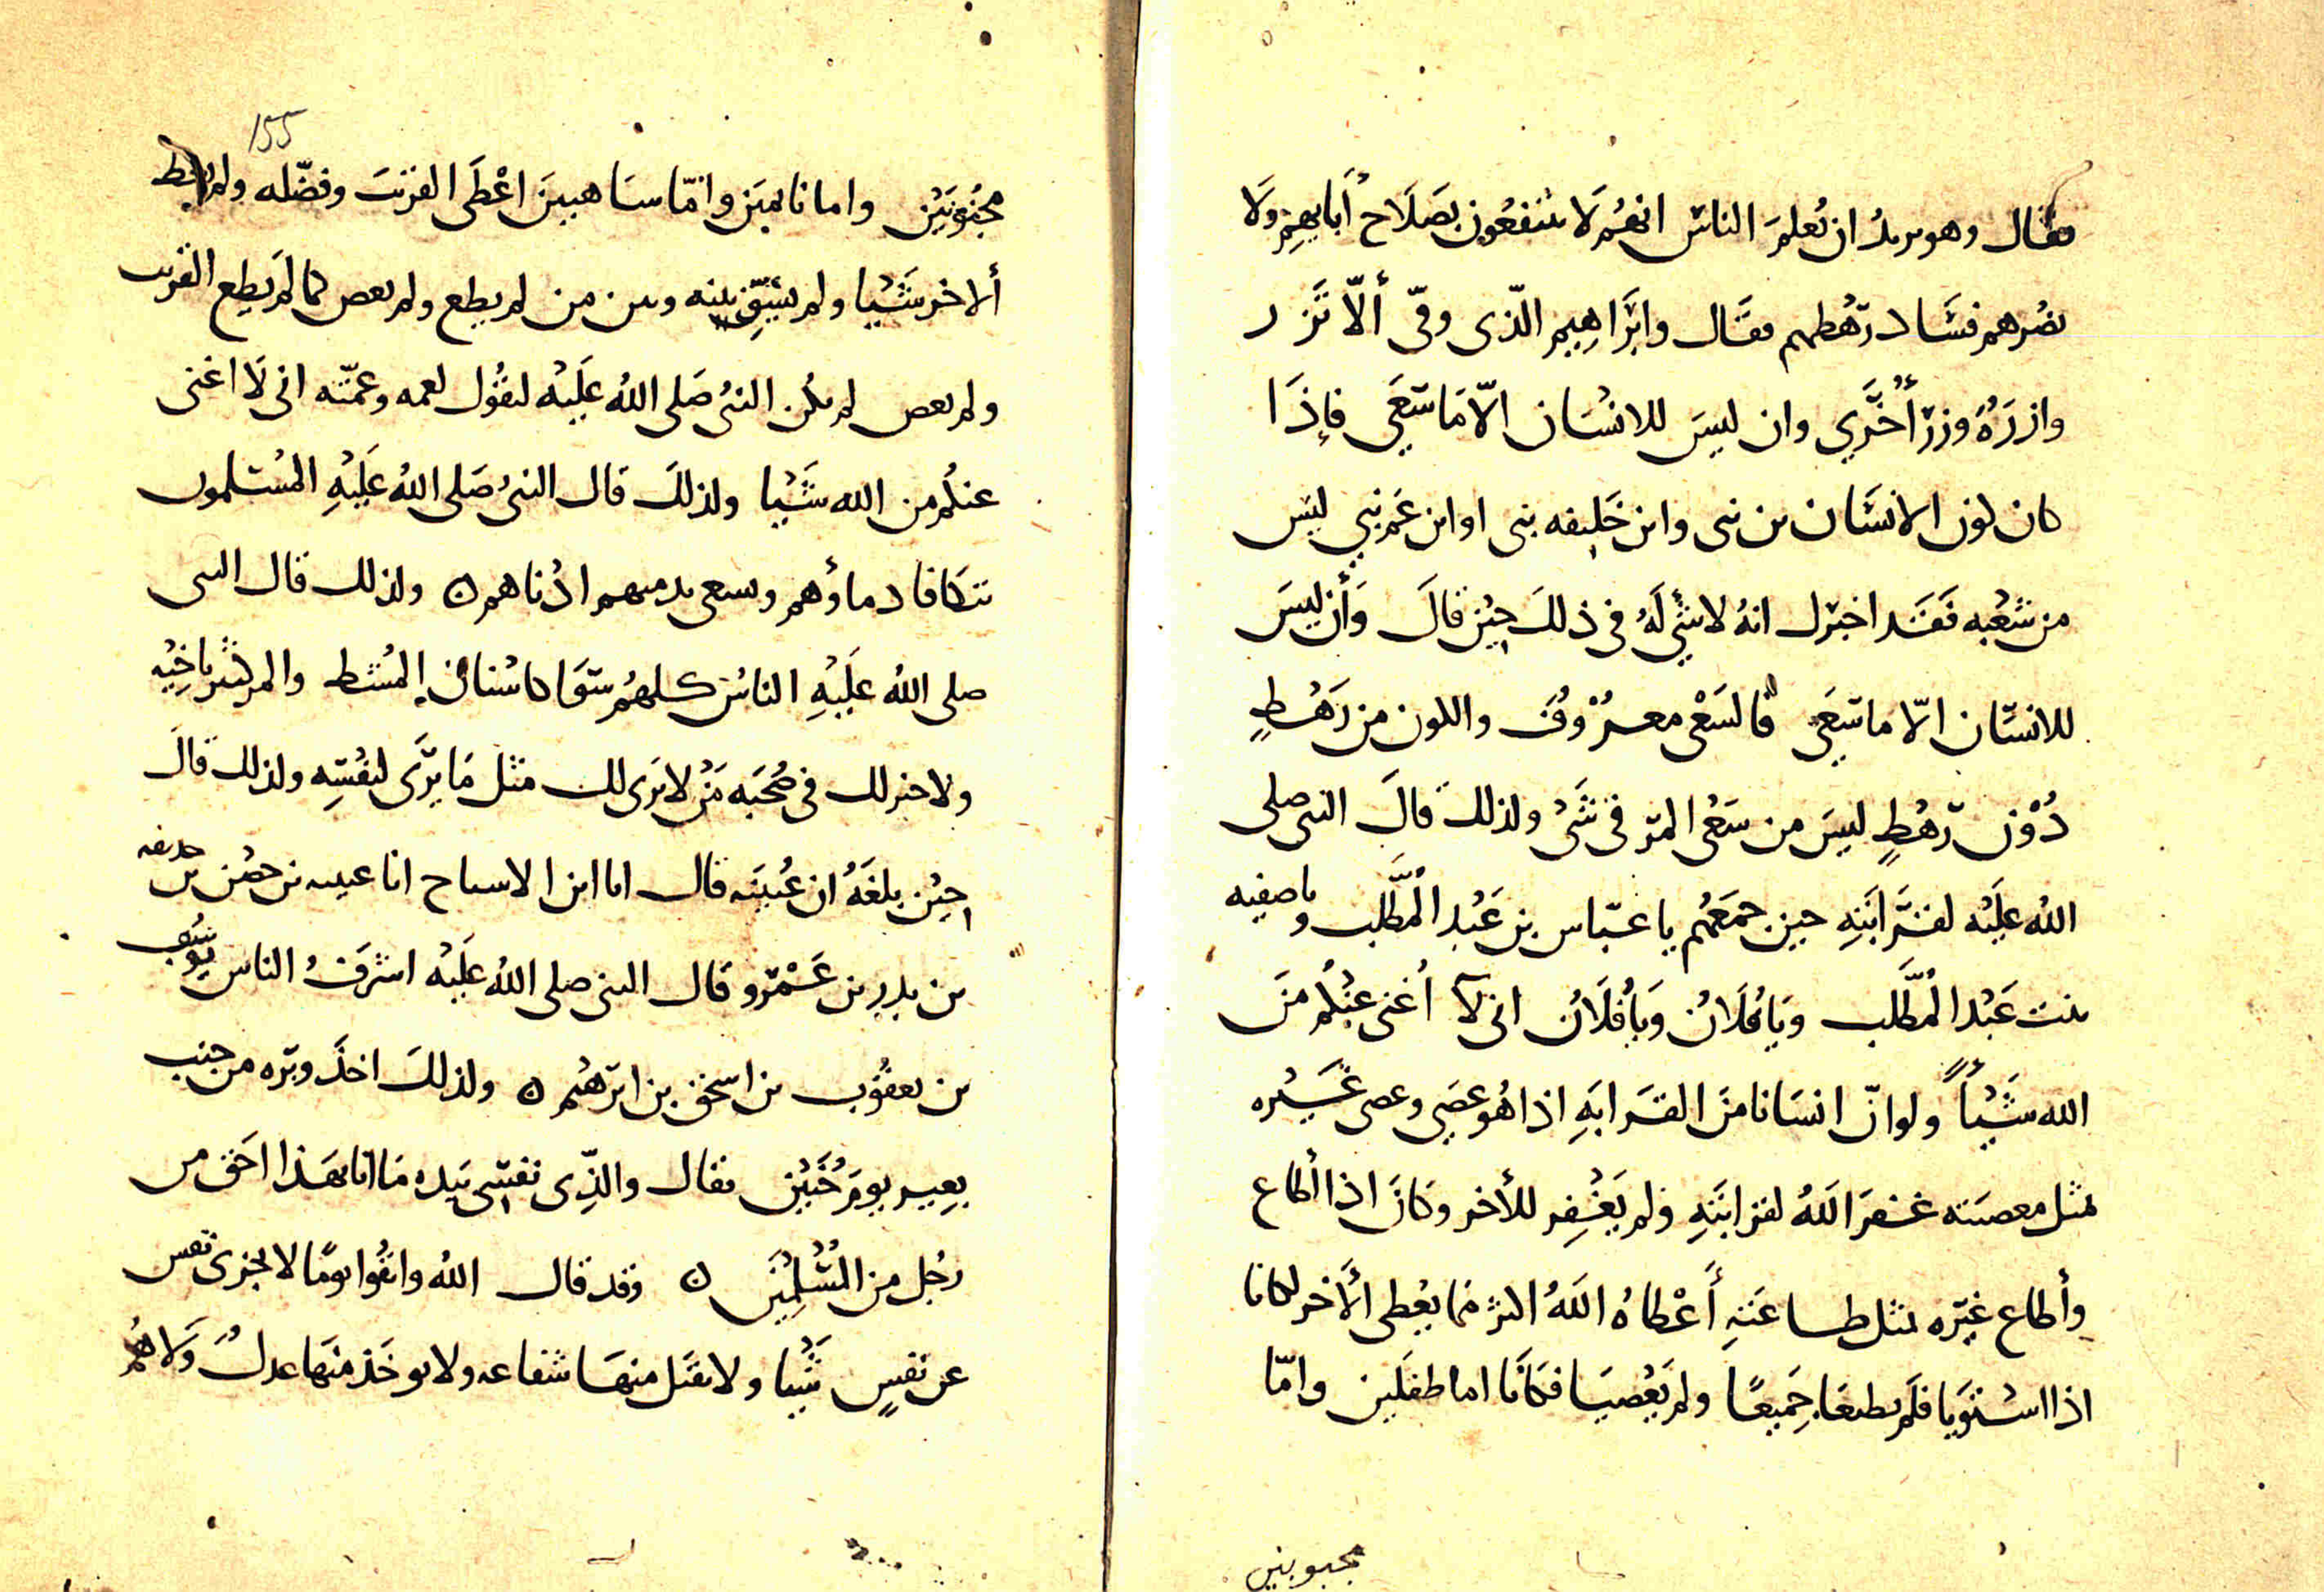 فقال وهو يريد ان يُعلمَ الناس انهُم لَا ينتفعُون بصَلَاح أبايهِم ولَا
يضُرهم فسَاد رَهْطهم فقَال وابْرَاهِيم الّذى وفّى ألّا تَزر
وازرَة وزرَ أُخْرَي وان ليسَ للانسَان الّا مَا سَعَي فإذَا
كان لون الانسَان بن نبى وابن خَليفه نبى او ابن عَم نبي ليسَ
من سَعْيه فَقَد اخبَرك انهُ لا شيْ لَهُ فى ذلكَ حِيْن قالَ وَأن ليسَ
للانسَان الّا ما سَعَي فالسَعْى معرُوفٌ واللون من رَهْطٍ
دُوْن رَهْطٍ ليسَ من سَعْى المرَ فى شَىْ ولذلكَ قالَ النبى صلى
اللهُ عَليْه لقرَابَتِهِ حين جمَعَهُم يا عبّاس بن عَبْد المُطَّلب ويا صفيه
بنت عَبْد المُطَّلب وَيَا فُلَانُ وَيَا فُلَانُ انى لاَ أغنى عنْكُم مِنَ
الله شَيْأً ولو انّ انسَانا منَ القرَابَهِ اذا هُو عصَي وعصى غَيْره
مثل معصيَته غفرَ اللهُ لقرابَتِهِ ولم يَغْفِر للأخر وكانَ اذا أطاع
وأطاع غيَره مثل طاعَتهِ أعْطاهُ اللهُ اكثر مما يعْطى ألأخر لكانا
اذا اسْتوَيا فلَم يطيعَا جَميعًا ولم يَعْصيَا فكَانَا اما طفلَين وامّا
مجبوبين
155
مجنُونَيْن واما نايمَين وامّا سَاهيينَ اعْطَى القريبَ وفضّله ولم يعط
ألاخر شَيْيا ولم يسَوِّ بينه وبين من لم يطع ولم يعص كما لم يطِع القريب
ولم يعص لم يكُن النبىُ صَلى اللهُ عَليْه ليقُول لعمه وعمّته انى لَا اغنى
عنكُم من الله شَيْيا ولذلكَ قال النبىُ صَلى اللهُ عَلَيْهِ المُسْلمون
تتكَافا دماؤُهم ويسعى بذمتهم ادْناهم ن ولذلك قال النبى
صلى اللهُ عَليْهِ الناسُ كلهُم سَوَا كاسْنان المُشط والمر كثير باخِيْه
ولا خير لك فى صُحْبَه مَنْ لا يَرَى لك مثل مَا يَرَى لنفْسِه ولذلك قالَ
حِيْن بلغَهُ ان عُيينَه قال انا ابن الاشياخ انا عيينه بن حصْن بن حذيفه
بن بدر بن عَمْرو قال النبى صلى اللهُ عَليْه اشرفُ الناس يوسُف
بن يعقُوب بن اسحق بن ابرَهْيم ن ولذلكَ اخذَ وبَره من جنب
بعِير يومَ حُنَيْن فقال والذِّى نفسِى بَيده مَا انا بهَذا احَق من
رجُل من المُسْلِمِيْنَ ن وقد قال اللهُ واتقُوا يومًا لا تجزى نفس
عن نفسٍ شَيْيا ولا يقبَل منهَا شفاعه ولا يوخَذ منهَا عدلٌ وَلَا هُم